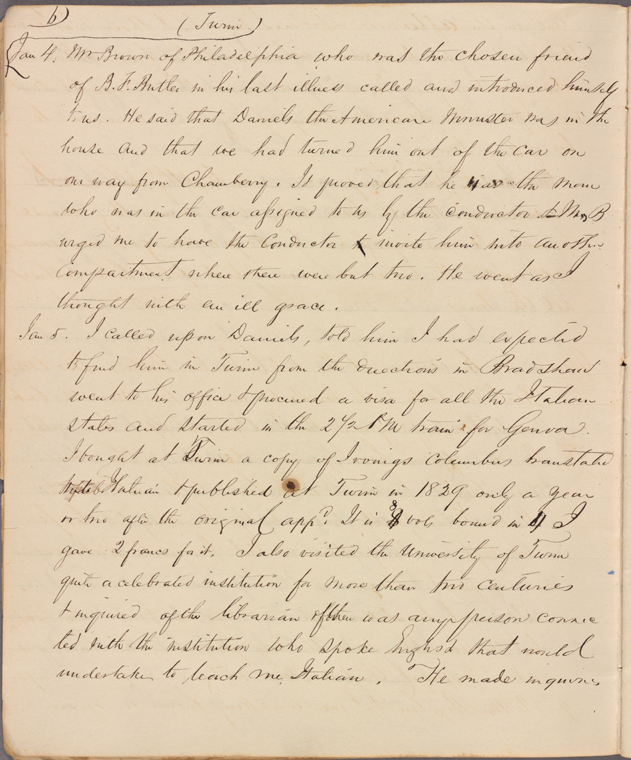 6)
(Turin)
Jan 4. Mr Brown of Philadelphia who was the chosen friend
of B. F. Butler in his last illness called and introduced himself
to us. He said that Daniels the American Minister was in the
house and that we had turned him out of the car on
our way from Chamberry. It proves that he was the man
who was in the car assigned to us by the conductor & Mrs B
urged me to have the Conductor invite him into another
compartment where there were but two. He went as I
thought with an ill grace.
Jan 5. I called upon Daniels, told him I had expected
to find him in Turin from the directions in Bradshaw
went to his office & procured a visa for all the Italian
states and started in the 2 1/2 P M train for Genoa.
I bought at Turin a copy of Irvings Columbus translated
Italian & published at Turin in 1829 only a year
or two after the original appd. It is 8 vols bound in 4 I
gave 2 francs for it. I also visited the University of Turin
quite a celebrated institution for more than two centuries
& inquired of the librarian if there was any person connec
ted with the institution who spoke English that would
undertake to teach me Italian. He made inquiries